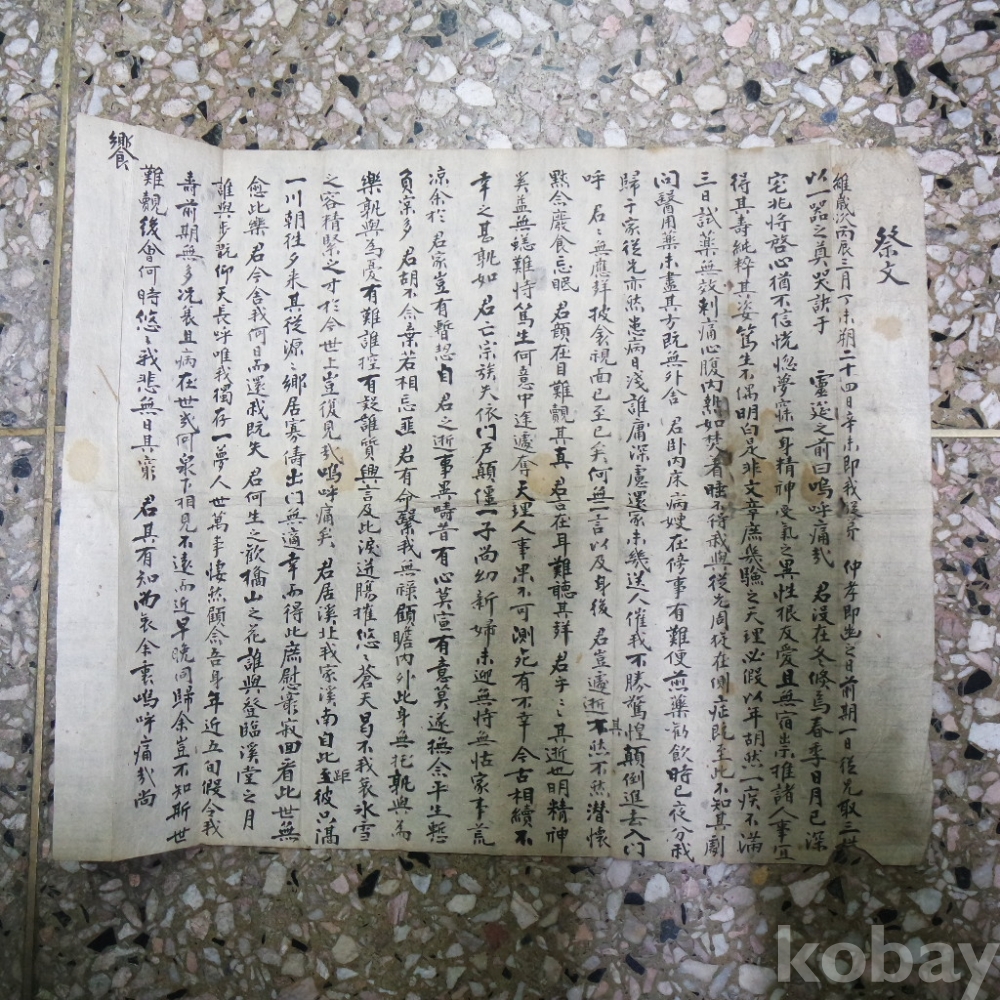 祭文
維歲次丙辰三月丁未朔二十四日辛未即我 仲孝即世之日前期一日從兄取三
以一器之奠哭訣于 靈筵之前曰嗚呼痛哉 君沒在冬倏焉春季日月已深
宅兆將啓心猶不信恍惚夢寐一身精神受氣之異性根友愛且無宿祟推諸人事宜
得其壽純粹其姿篤生不偶明白是非文章庶幾驗之天理必假以年胡然一疾不滿
三日試藥無效刺痛心腹內 如焚着睡不得我與從先周旋在側症既至此不知其劇
問醫用藥未盡其方既無外舍 君卧內床病嫂在傍事有難便煎藥勸飲時已夜分我
歸于家從先亦然患病日淺誰庸深慮還家未幾送人催我不勝驚惶顛倒進去入門
呼 君〻無應聲披衾視面已至已矣何無一言以及身後 君豈遽逝不然不然潛懷
其
黙念廢食忘眠 君顔在目難覿其真 君言在耳難聽其聲 君乎〻其逝也明精神
奚益無 難恃篤生何意中途遽奪天理人事果不可測死有不幸今古相續不
幸之甚孰如 君亡宗族失依門戶顛僵一子尚幼新婦未迎無恃無怙家事荒
凉余於 君家豈有暫忽自 君之逝事異疇昔有心莫宣有意莫遂撫念平生慙
負亲多 君胡不念棄若相忘匪 君有命繄我無祿顧瞻內外此身無托孰與爲
樂孰與爲憂有難誰控有疑誰質興言及此淚迸腸摧悠〻蒼天曷不我哀氷雪
之容精緊之才於今世上豈復見哉嗚呼痛矣 君居溪北我家溪南自此至彼只隔
距
一川朝往夕來其從源〻鄉居寡儔出門無適幸而得此庶慰衆寂回看此世無
愈此樂 君今舍我何日而還我既失 君何生之歡 山之花誰與登臨溪堂之月
誰與步翫仰天長呼唯我獨存一夢人世萬事悽然顧念吾身年近五旬假令我
壽前期無多况衰且病在世幾何泉下相見不遠而近早晚同歸余豈不知斯世
難覿後會何時悠〻我悲無日其窮 君其有知尚哀余衷嗚呼痛哉尚
饗
kobay